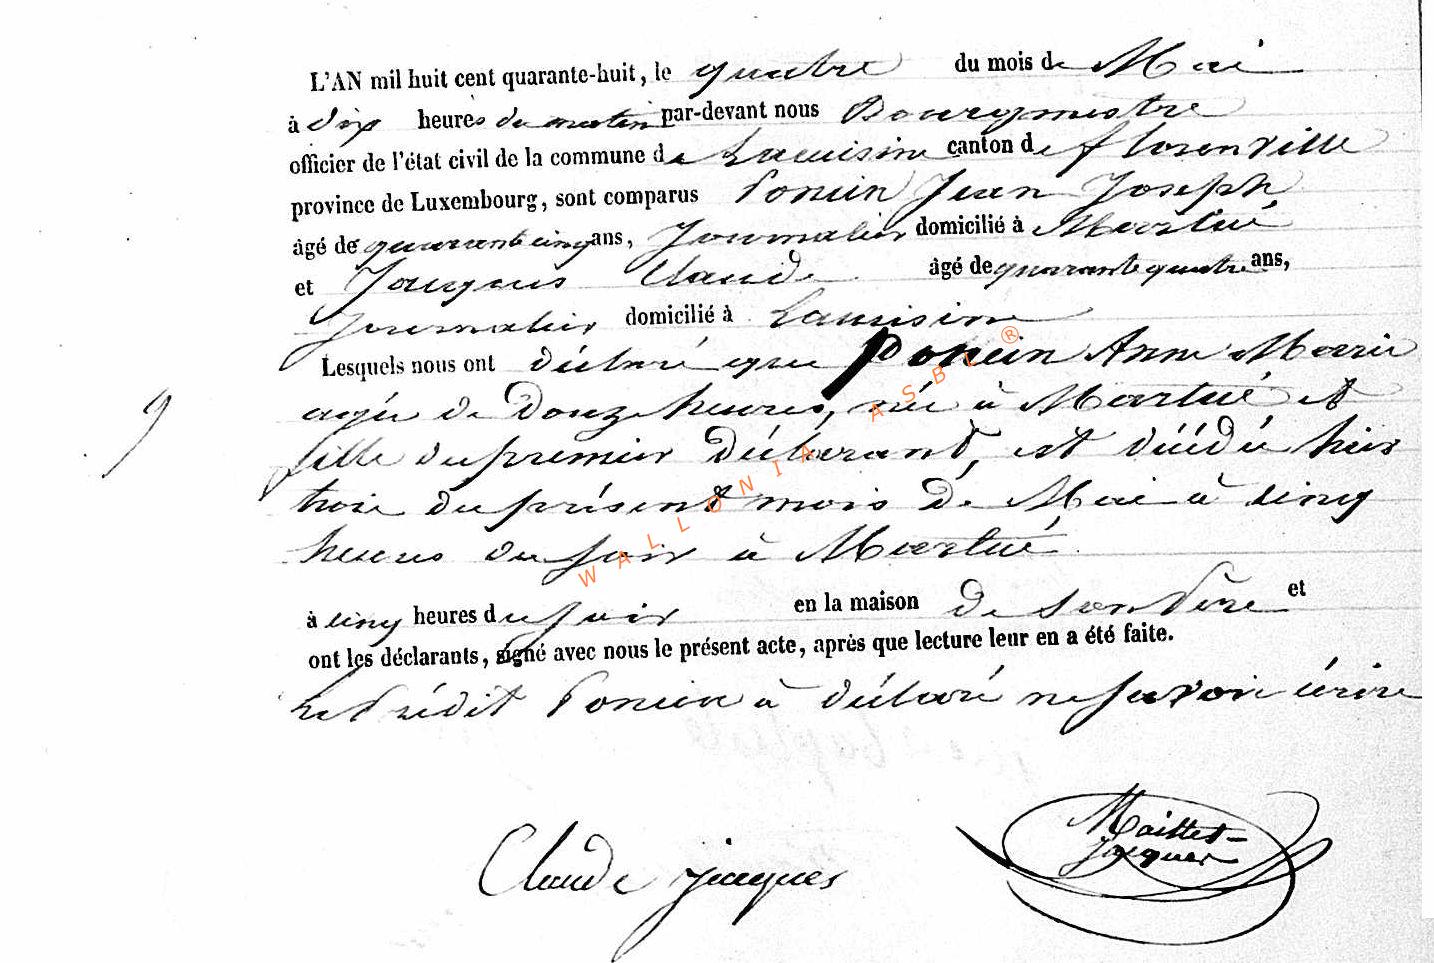 L'AN mil huit cent quarante-huit, le quatre du mois de Mai
à dix heures du matin par-devant nous Bourgmestre
officier de l'état civil de la commune de Lacuisine canton de florenville
province de Luxembourg, sont comparus Poncin Jean Joseph
âgé de quarante cinq ans, Journalier domicilié à Martué
et Jacques Claude âgé de quarante quatre ans,
Journalier domicilié à Lacuisine
Lesquels nous ont déclaré que Poncin Anne Marie
agée de douze heures, née à Martué et
fille du premier déclarant, est décédée hier
trois du présent mois de Mai à cinq
heures du soir à Martué
à cinq heures du soir en la maison de son Père et
ont les déclarants, signé avec nous le présent acte, après que lecture leur en a été faite.
Le Prédit Poncin à déclaré ne savoir écrire
9
Claude jacques
Maillet-
jacques
WALLONIA ASBL ®